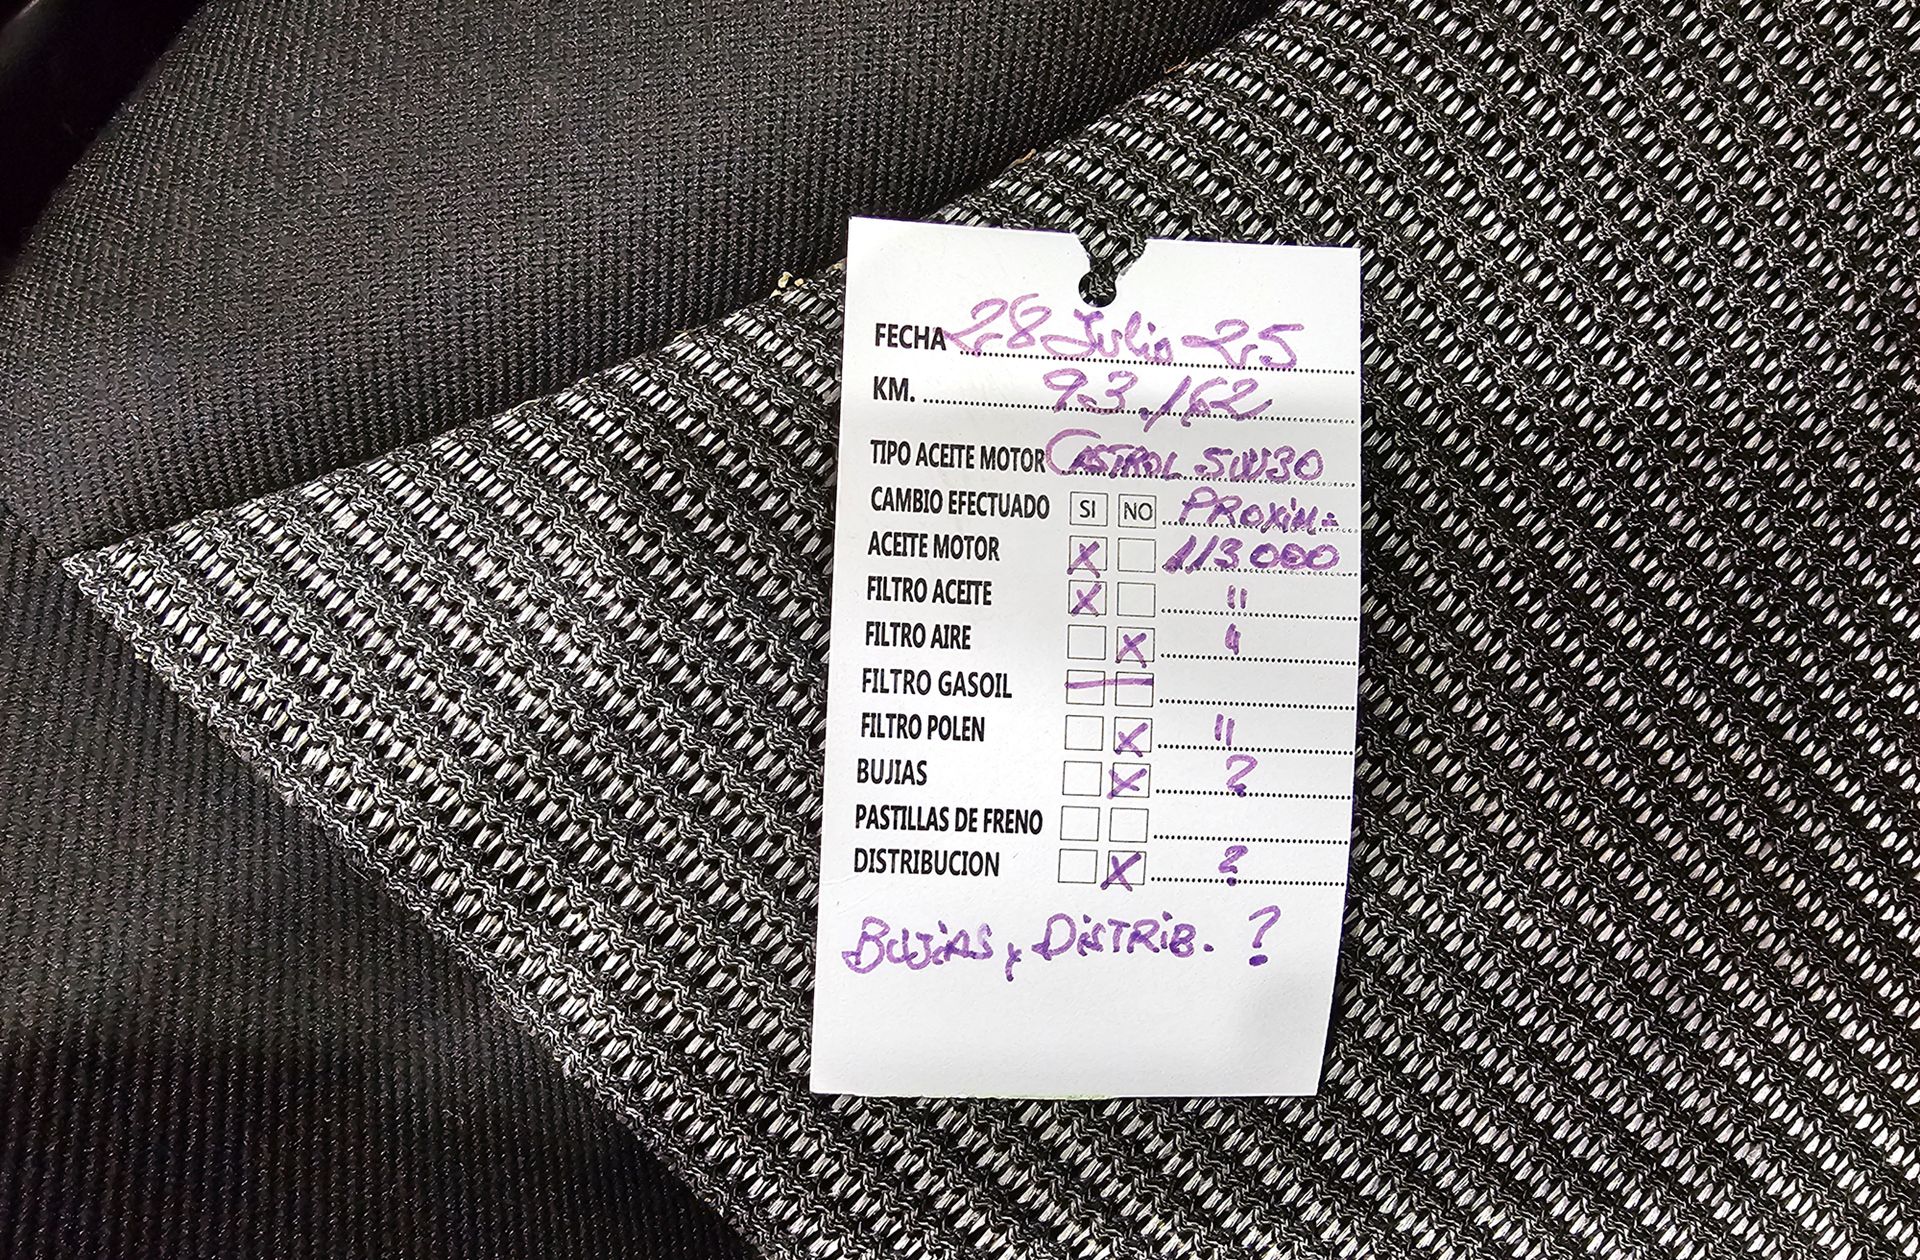 FECHA 28 Julio 25
KM. 93.162
TIPO ACEITE MOTOR CASTROL 5W30
CAMBIO EFECTUADO SI NO PROXIM-
ACEITE MOTOR X 113000
FILTRO ACEITE X "
FILTRO AIRE X "
FILTRO GASOIL —
FILTRO POLEN X "
BUJIAS X ?
PASTILLAS DE FRENO
DISTRIBUCION X ?
BUJIAS y DISTRIB. ?